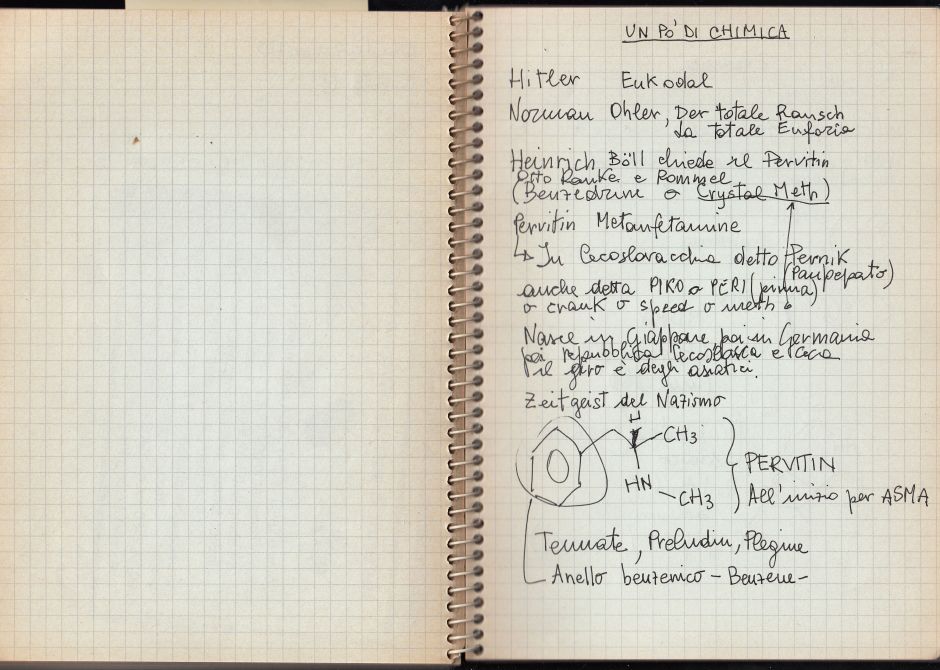 UN PO' DI CHIMICA
Hitler Eukodal
Norman Ohler, Der totale Rausch
La totale Euforia
Heinrich Böll chiede il Pervitin
Otto Ranke e Rommel
(Benzedrine o Crystal Meth)
Pervitin Metanfetamine
In Cecoslovacchia detto Pernik
(Panpepato)
anche detta PIKO o PERI (prima)
o crank o speed o meth
Nasce in Giappone poi in Germania
poi repubblica e ceca
il giro è degli asiatici.
Zeitgeist del Nazismo
H
CH3
HN
CH3
PERVITIN
All'inizio per ASMA
Tenuate, Preludin, Plegine
Anello benzenico - Benzene -